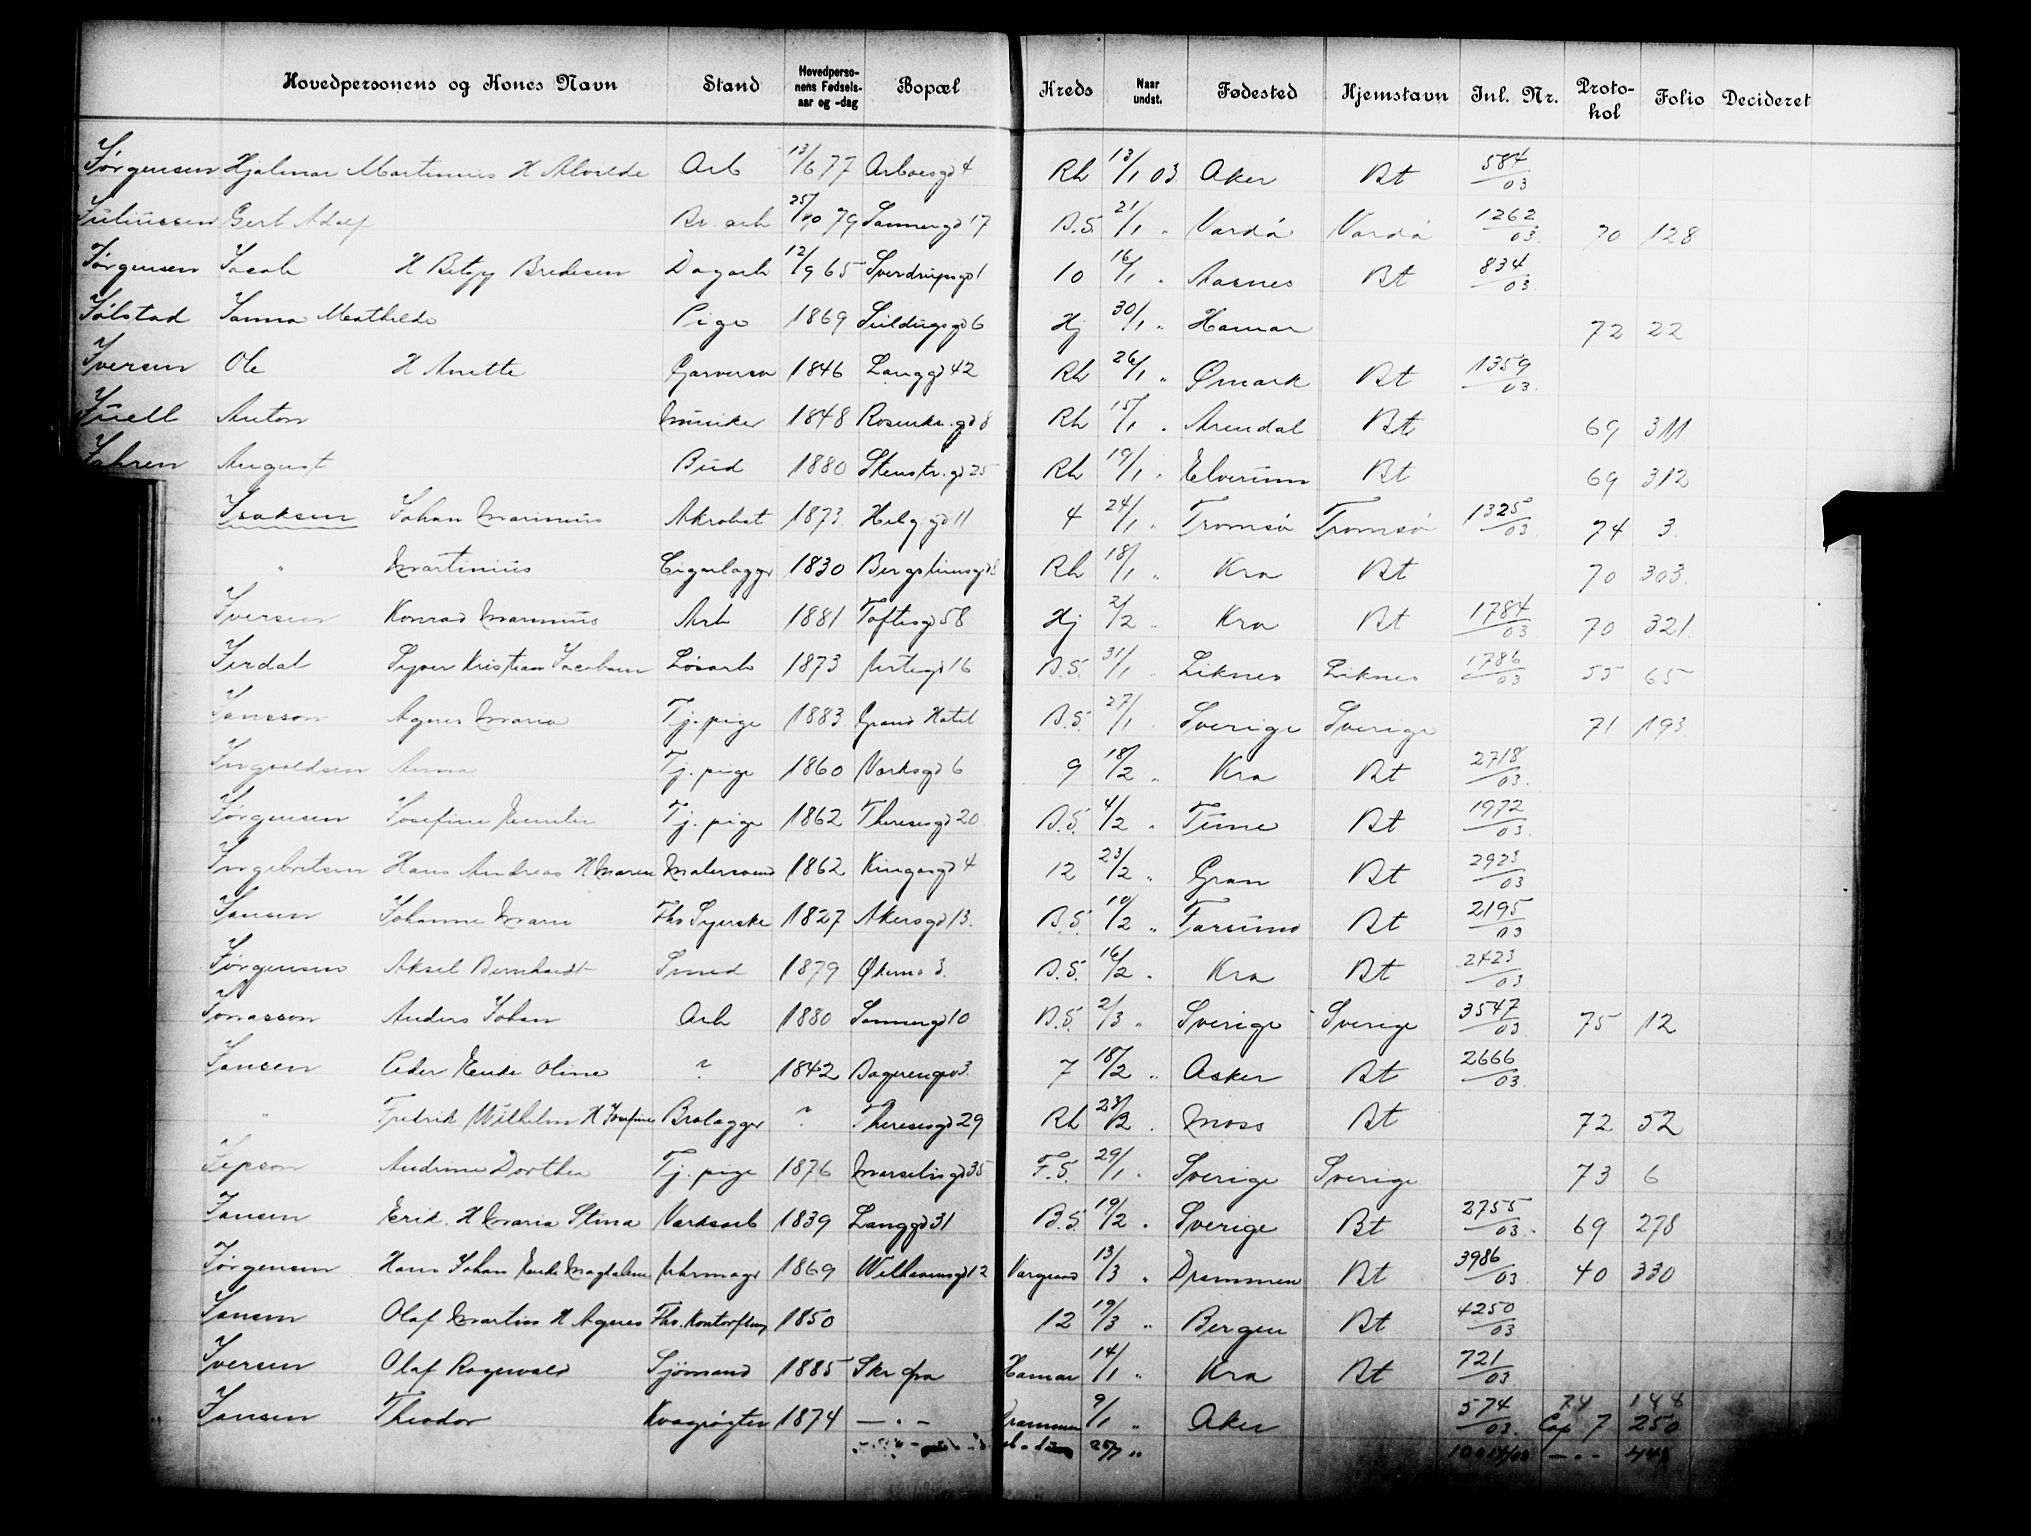 Hovedpersonens og Kones Navn Stand Hovedpersonens Fødselsaar og -dag Bopæl Kreds Naar undst. Fødested Hjemstavn Inl. Nr. Protokol Folio Decideret
Jørgensen Hjalmar Martinius H Alvilde Arb 13/6 77 Arboesgd 4 Rh 13/1 03 Aker Bt 584/03
Juliussen Gert Adolf Br. arb 25/10 79 Sannergd 17 B.S. 21/1 " Vardø Vardø 1262/03 70 128
Jørgensen Jacob H Betzy Bredesen Dagarb 12/9 65 Sverdrupsgd 1 10 16/1 " Aasnes Bt 834/03
Jølstad Janna Mathilde Pige 1869 6 Hj 30/1 " Hamar 72 22
Iversen Ole H Anette Garversv 1846 Langgd 42 Rh 26/1 " Ømark Bt 1359/03
Juell Anton Musiker 1848 Rosenkr.gd 8 Rh 15/1 " Arendal Bt 69 311
Jahren August Bud 1880 Stenstr.gd 25 Rh 19/1 " Elverum Bt 69 312
Isaksen Johan Marinius Akrobat 1873 Helg.gd 11 4 24/1 " Tromsø Tromsø 1325/03 74 3
" Martinius Cigarlagger 1830 Bergslinsgd 8 Rh 18/1 " Kra Bt 70 303
Iversen Konrad Marinius Arb 1881 Toftesgd 58 Hj 2/2 " Kra Bt 1784/03 70 321
Jerdal Syver Kristian Jacobsen Løsarb 1873 16 B.S. 31/1 " Liknes Liknes 1786/03 55 65
Jansson Agnes Maria Tj. pige 1883 Grand Hotel B.S. 27/1 Sverige Sverige 71 193
Ingvaldsen Anna Tj. pige 1860 Verksgd 6 9 18/2 " Kra Bt 2718/03
Jørgensen Josefine Emilie Tj. pige 1862 Theresesgd 20 B.S. 4/2 " Time Bt 1972/03
Ingebretsen Hans Andreas H Maren Malersvend 1862 Kingosgd 4 12 23/2 " Gran Bt 2923/03
Jansen Johanne Marie Fhs Syerske 1827 Akersgd 13 B.S. 10/2 " Farsund Bt 2195/03
Jørgensen Aksel Bernhardt Smed 1879 Økern 3 B.S. 16/2 " Kra Bt 2423/03
Jonasson Anders Johan Arb 1880 Sannergd 10 B.S. 2/3 " Sverige Sverige 3547/03 75 12
Jansen Peder Enke Oline ? 1842 3 7 18/2 " Asker Bt 2666/03
" Fredrik Wilhelm H Josefine Brolægger ? Theresesgd 29 Rh 23/2 " Moss Bt 72 52
Jepson Andrine Dorthea Tj. pige 1876 Marselisgd 35 F.S. 29/1 " Sverige Sverige 73 6
Jansen Erik H Maria Stina Verksarb 1839 Langgd 31 B.S. 19/2 " Sverige Bt 2755/03 69 278
Jørgensen Hans Johan Enke Magdalene Uhrmager 1869 Wilhelmsgd 12 13/3 " Drammen Bt 3986/03 40 330
Jansen Olaf Martin H Agnes Fhs. 1850 12 19/3 " Bergen Bt 4250/03
Iversen Olaf Ragnvald Sjømand 1885 Skr fra Hamar 14/1 " Kra Bt 721/03
Jansen Theodor Kvægrøgter 1874 — " — Drammen 9/1 " Aker 574/03 74 148
Cop 7 250
25/7 " — " —